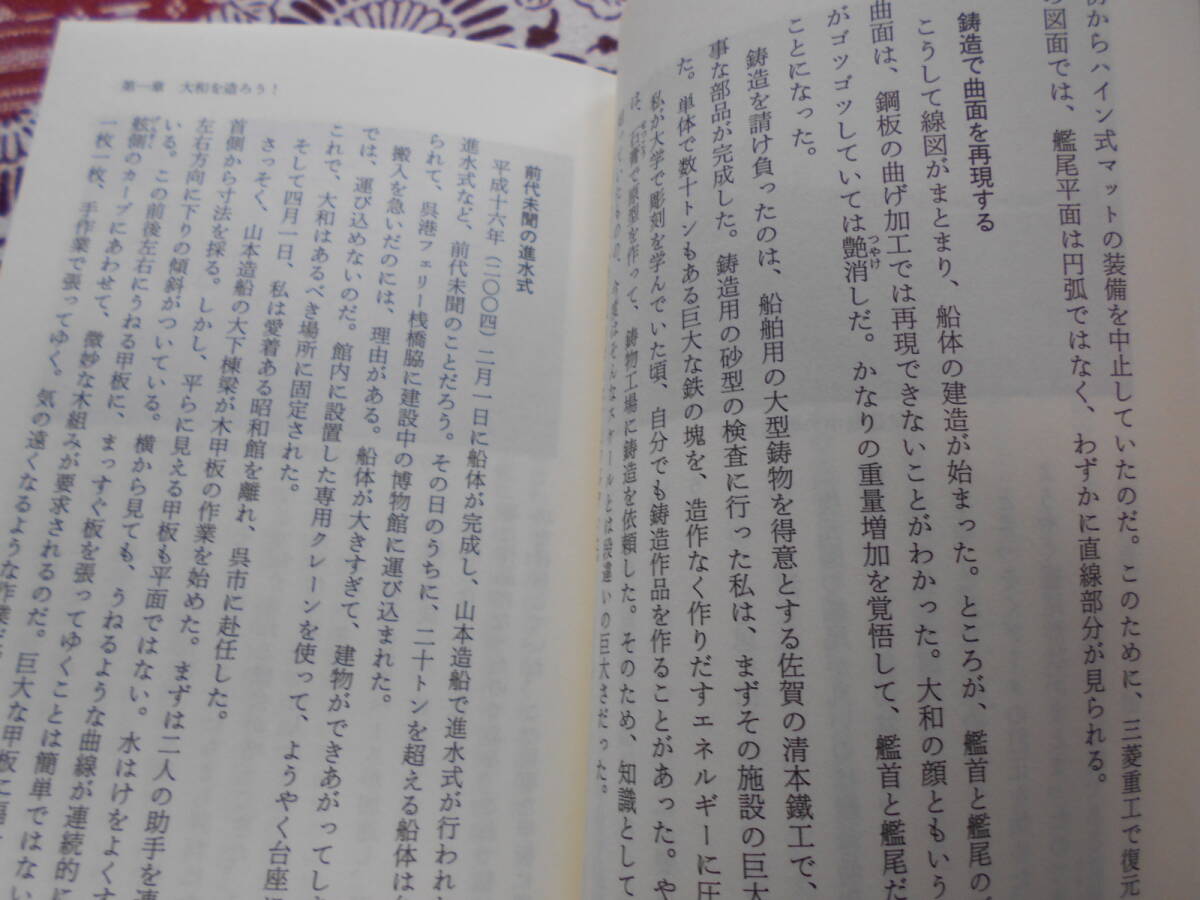 らハイン式マットの装備を中止していたのだ。このために、三菱重工で復元
図面では、艦尾平面は円弧ではなく、わずかに直線部分が見られる。
鋳造で曲面を再現する
こうして線図がまとまり、船体の建造が始まった。ところが、艦首と艦尾の
曲面は、鋼板の曲げ加工では再現できないことがわかった。大和の顔ともいう
がゴツゴツしていては艶消しだ。かなりの重量増加を覚悟して、艦首と艦尾だ
つやけ
ことになった。
鋳造を請け負ったのは、船舶用の大型鋳物を得意とする佐賀の清本鐵工で、
事な部品が完成した。鋳造用の砂型の検査に行った私は、まずその施設の巨大
た。単体で数十トンもある巨大な鉄の塊を、造作なく作りだすエネルギーに圧
私が大学で彫刻を学んでいた頃、自分でも鋳造作品を作ることがあった。や
石膏で原型を作って、鋳物工場に鋳造を依頼した。そのため、知識として
違いの巨大さだった。
第一章 大和を造ろう!
前代未聞の進水式
平成十六年(二〇〇四)二月一日に船体が完成し、山本造船で進水式が行われ
進水式など、前代未聞のことだろう。その日のうちに、二十トンを超える船体は
られて、呉港フェリー桟橋脇に建設中の博物館に運び込まれた。
搬入を急いだのには、理由がある。船体が大きすぎて、建物ができあがってし
では、運び込めないのだ。館内に設置した専用クレーンを使って、ようやく台座
これで、大和はあるべき場所に固定された。
そして四月一日、私は愛着ある昭和館を離れ、呉市に赴任した。
さっそく、山本造船の大下棟梁が木甲板の作業を始めた。まずは二人の助手を連
首側から寸法を採る。しかし、平らに見える甲板も平面ではない。水はけをよくす
左右方向に下りの傾斜がついている。横から見ても、うねるような曲線が連続的に
いる。この前後左右にうねる甲板に、まっすぐ板を張ってゆくことは簡単ではない
舷側のカーブにあわせて、微妙な木組みが要求されるのだ。巨大な甲板に
げんそく
一枚一枚、手作業で張ってゆく。気の遠くなるような作業だ